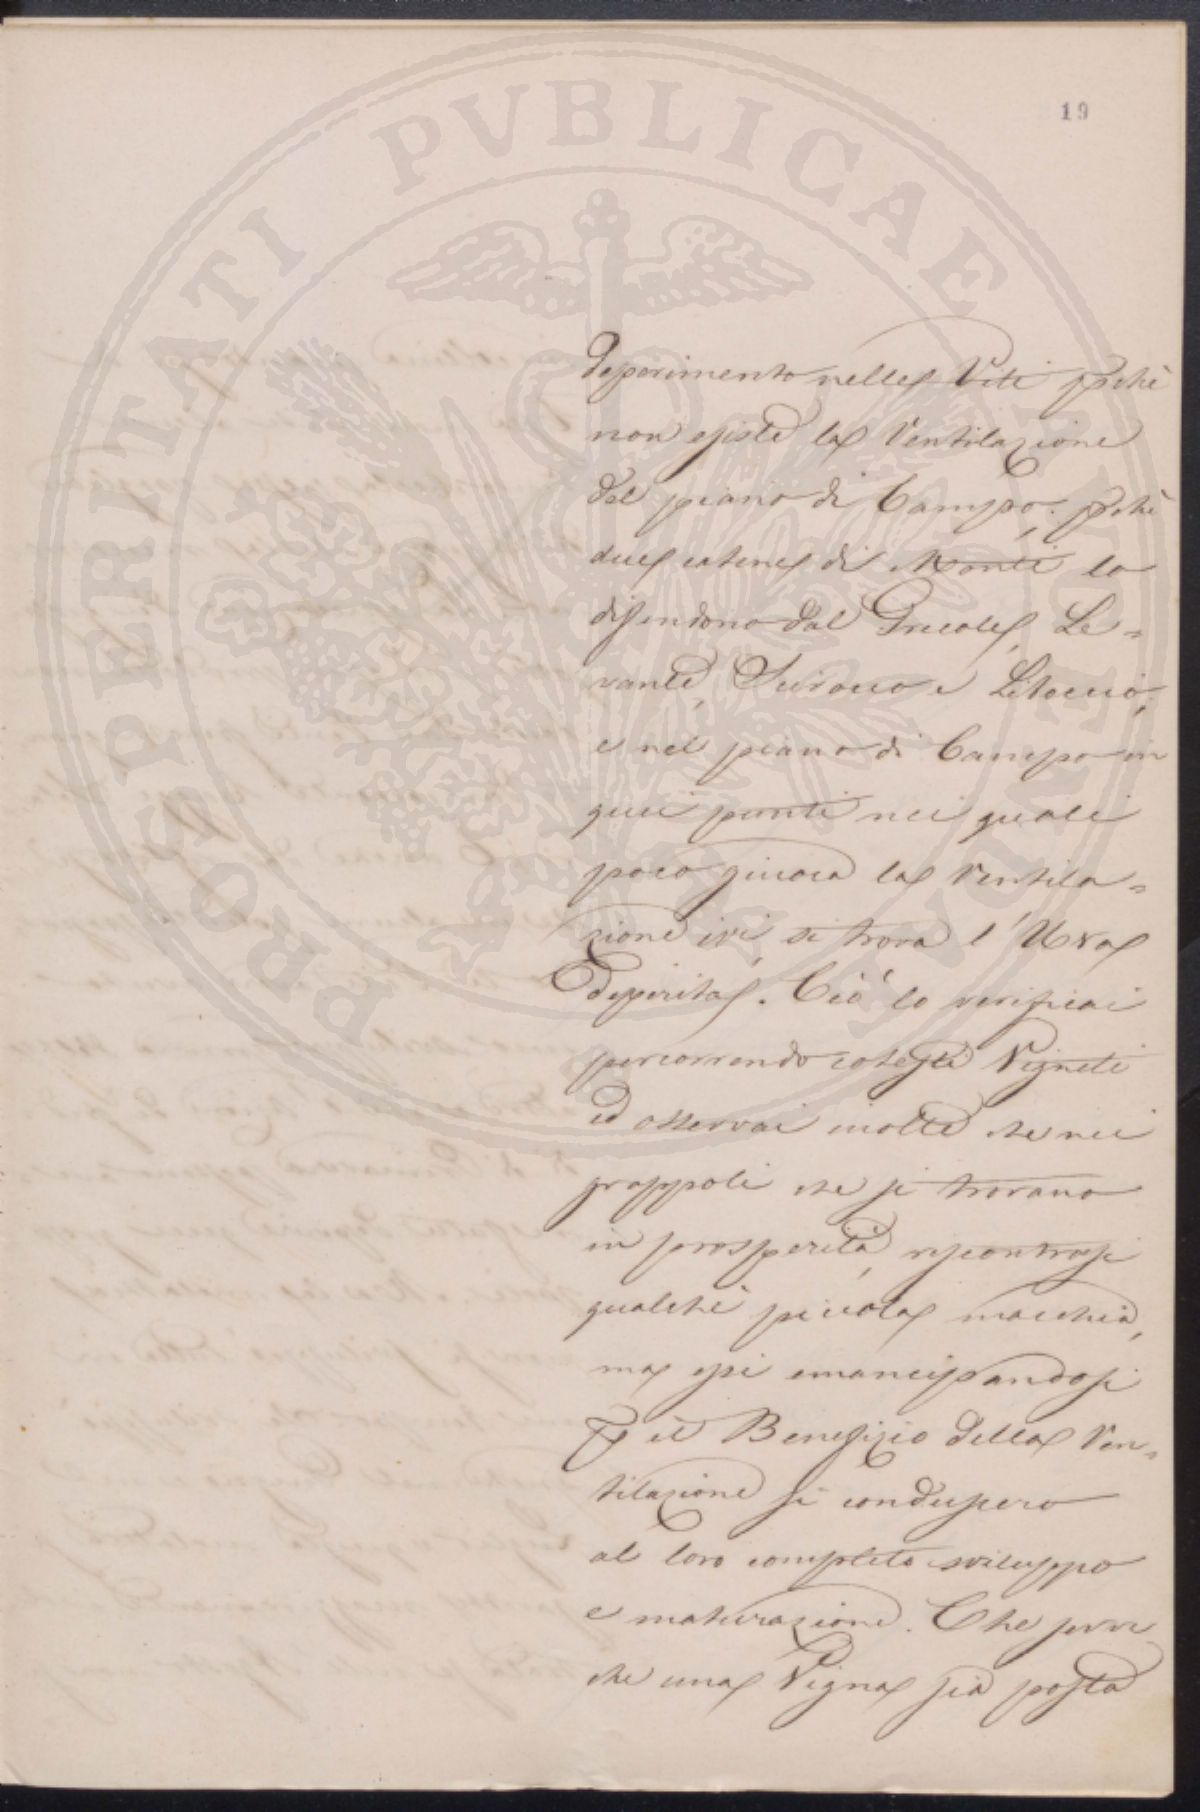 19
PROSPERITATI PVBLICAE
deperimento nelle Viti pchè
non esiste la Ventilazione
del piano di Campo; pchè
due catene di Monti lo
difendono dal Grecale, Le=
vante, Scirocco e Libeccio,
e nel piano di Campo in
quei punti nei quali
poco giuoca la Ventila=
zione ivi si trova l'Uva
deperita. Ciò lo verificai
percorrendo cotesti Vigneti
ed osservai inoltre che nei
grappoli che si trovano
in prosperità, riscontrasi
qualche piccola macchia,
ma essi emancipandosi
p il Benefizio della Ven=
tilazione si condussero
al loro completo sviluppo
e maturazione. Che
che una Vigna sia posta